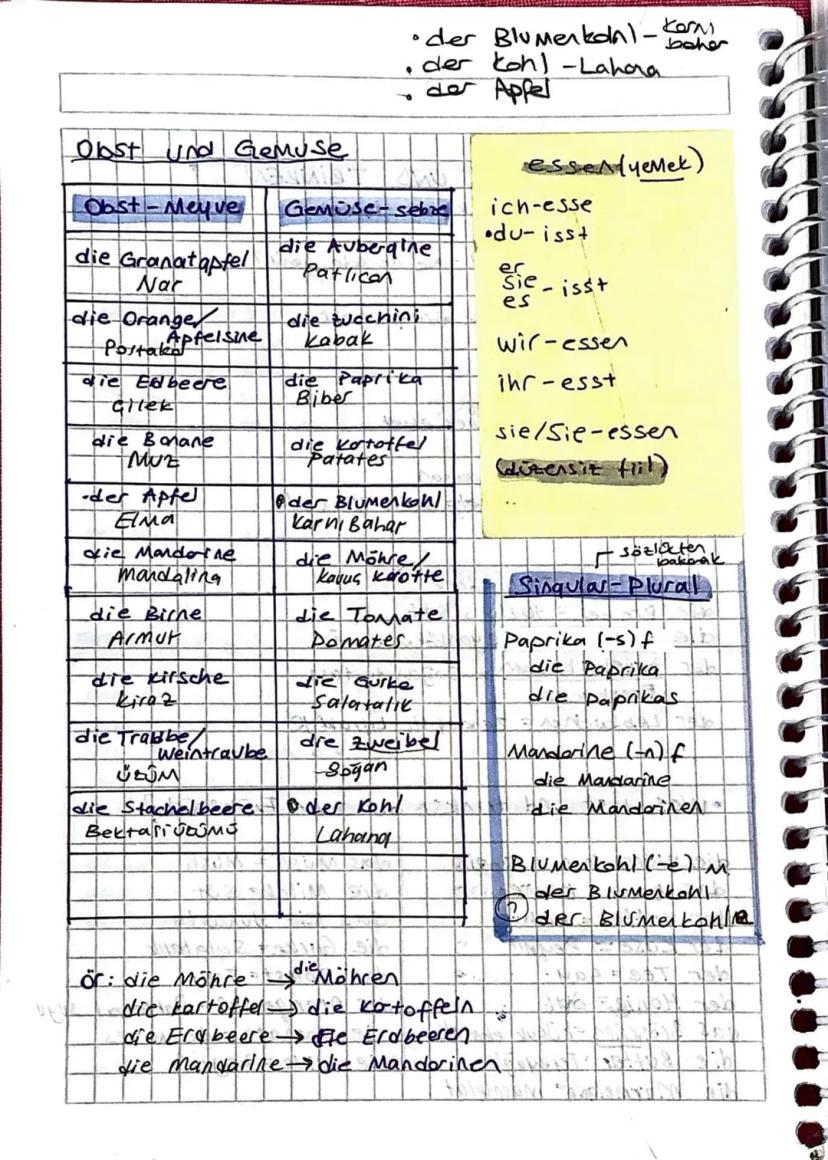 • der Blumenkohl - karnı bahar
• der Kohl - Lahana
• der Apfel
Obst und Gemüse
Obst - Meyve
Gemüse - sebze
die Granatapfel
Nar
die Aubergine
Patlıcan
die Orange/
Apfelsine
Portakal
die zucchini
kabak
die Edbeere
Çilek
die Paprika
Biber
die Banane
Muz
die Kartoffel
Patates
• der Apfel
Elma
• der Blumenkohl
Karnı Bahar
die Mandarine
Mandalina
die Möhre/
Karotte
die Birne
Armut
die Tomate
Domates
die Kirsche
Kiraz
die Gurke
Salatalık
die Traube/
Weintraube
Üzüm
die Zweibel
Soğan
die Stachelbeere
Bektaşi üzümü
• der Kohl
Lahana
essen (yemek)
ich - esse
• du - isst
er
sie
es - isst
wir - essen
ihr - esst
sie/Sie - essen
(düzensiz fiil)
sözlükten
bakarak
Singular - Plural
Paprika (-s) f
die Paprika
die Paprikas
Mandarine (-n) f
die Mandarine
die Mandarinen
Blumenkohl (-e) m
der Blumenkohl
? der Blumenkohle
ör: die Möhre → die Möhren
die Kartoffel → die Kartoffeln
die Erdbeere → die Erdbeeren
die Mandarine → die Mandarinen